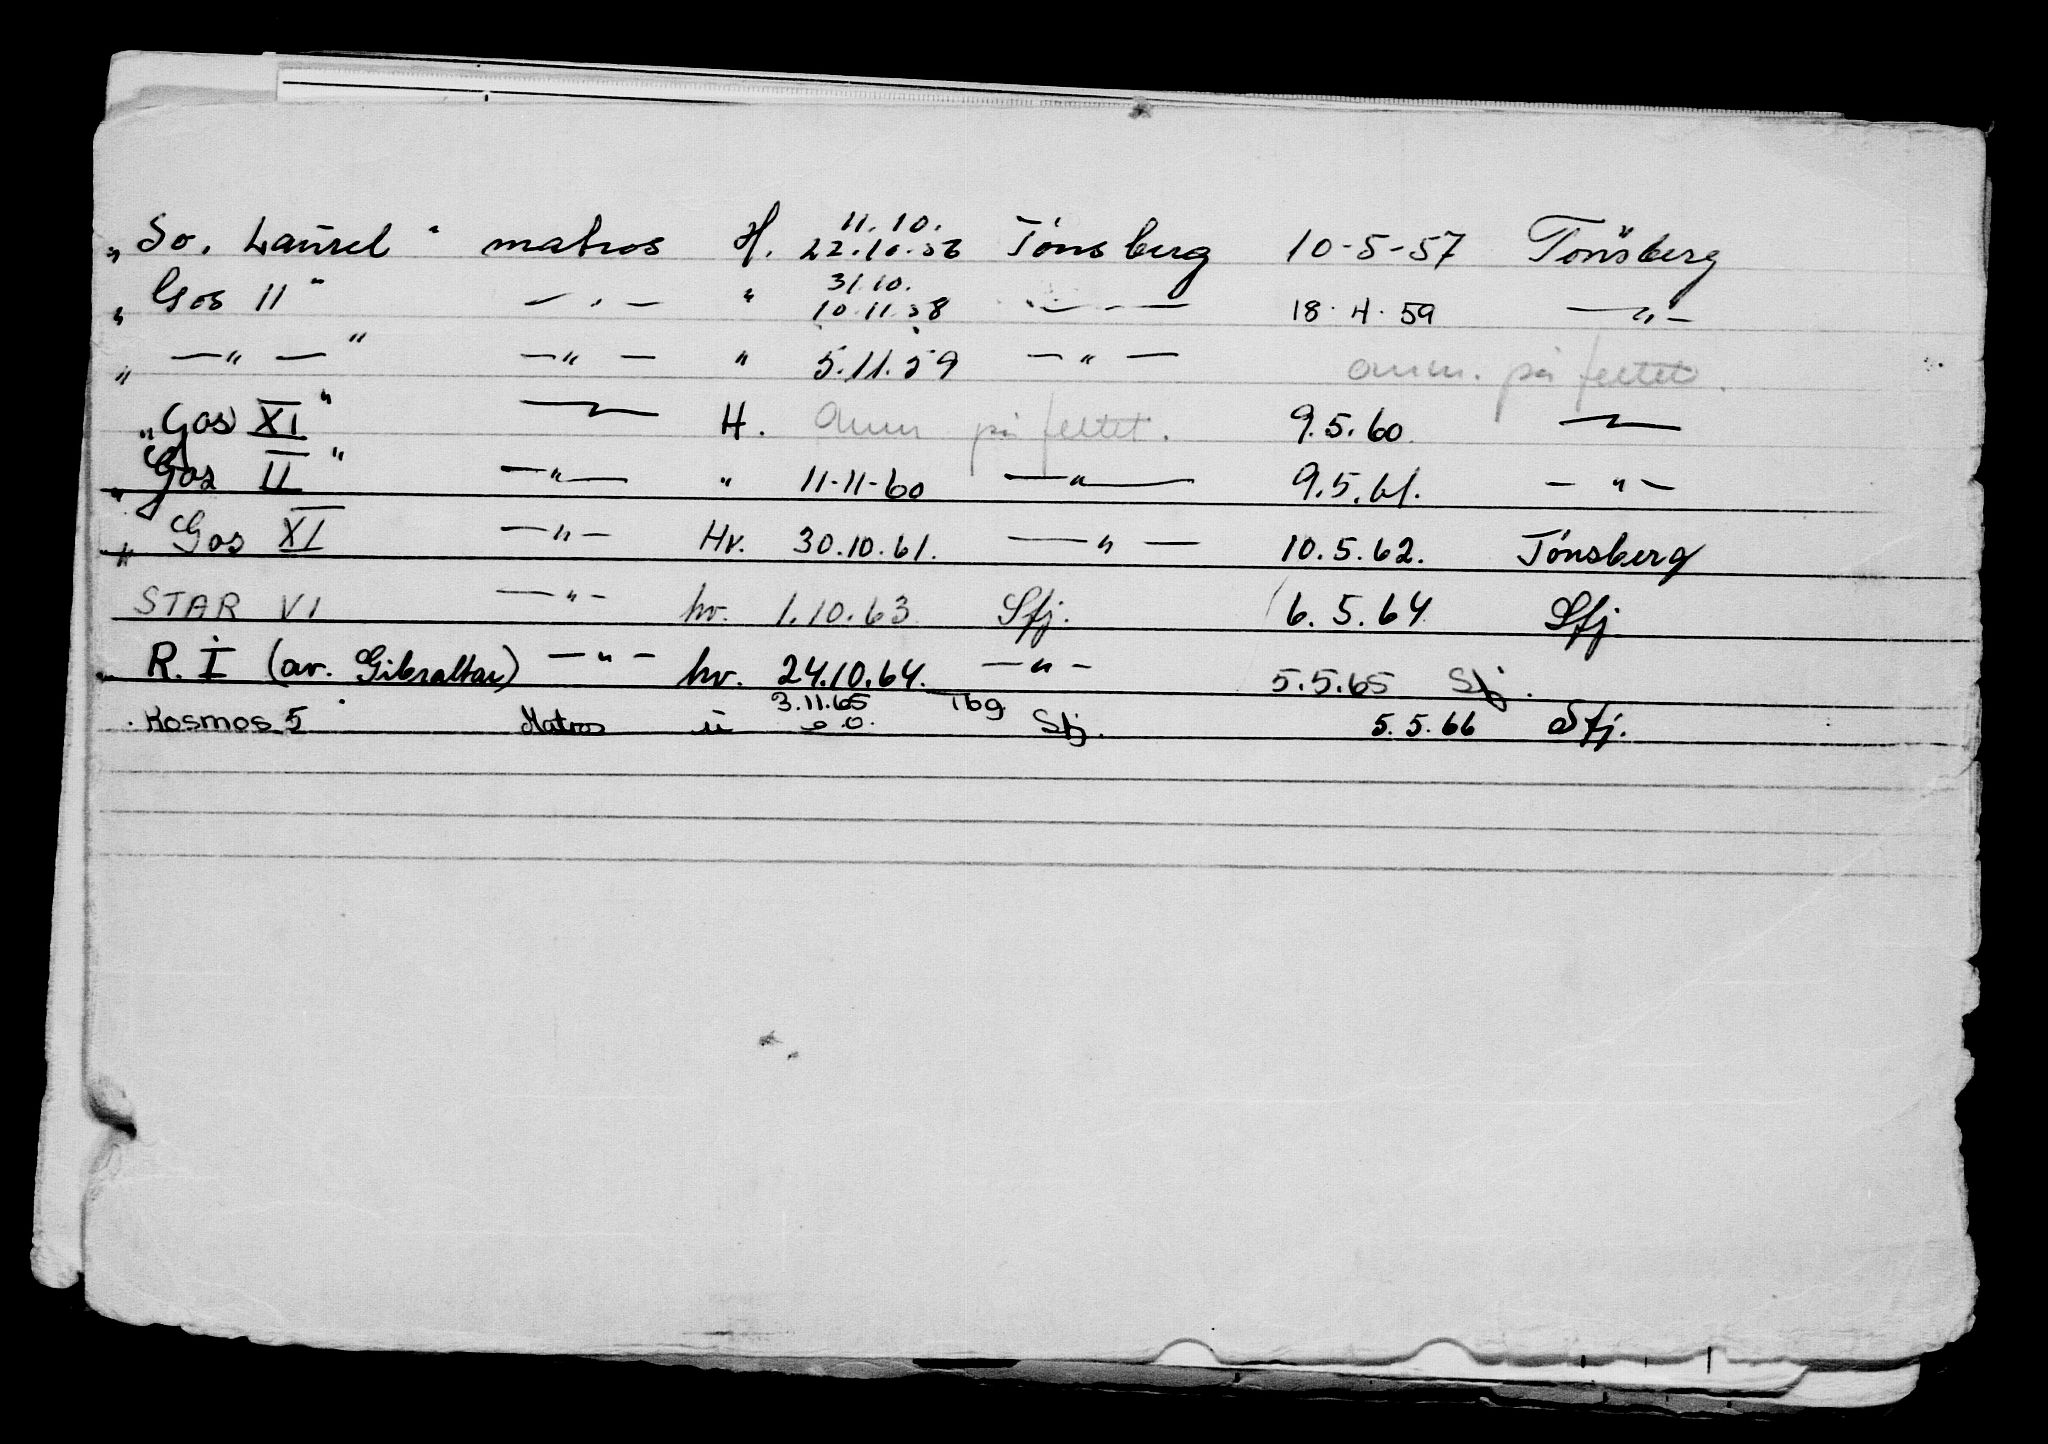 11.10.
„So. Laurel" matros H. 22.10.56 Tönsberg 10-5-57 Tönsberg
31.10.
„Gos 11" — " — " 10.11.58 — " — 18.4.59 — " —
„ — " — " — " — " 5.11.59 — " — avm. på feltet.
„Gos XI" — " — H. avm på feltet. 9.5.60. — " —
„Gos II" — " — " 11-11-60 — " — 9.5.61. — " —
„Gos XI — " — Hv. 30.10.61. — " — 10.5.62. Tönsberg
STAR VI — " — hv. 1.10.63 Sfj. 6.5.64 Sfj.
R. I (av. Gibraltar) — " — hv. 24.10.64. — " — 5.5.65 Sfj.
3.11.65 Tbg
Kosmos 5 Matros " Sfj. 5.5.66 Sfj.